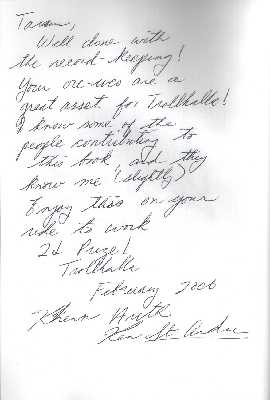 Well done with
the record-keeping!
Your are a
great asset for Trollhalla!
I know some of the
people contributing to
this book and they
know me (slightly)
Enjoy this on your
ride to work
2d Prize!
Trollhalla
February 2006
Khenn
Ken St. Andre